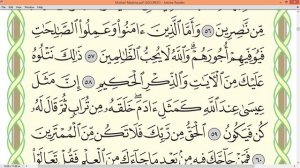 Mushaf Madinah.pdf (SECURED) - Adobe Reader
مِّن نَّٰصِرِينَ ٥٦ وَأَمَّا ٱلَّذِينَ ءَامَنُوا۟ وَعَمِلُوا۟ ٱلصَّٰلِحَٰتِ
فَيُوَفِّيهِمْ أُجُورَهُمْ ۗ وَٱللَّهُ لَا يُحِبُّ ٱلظَّٰلِمِينَ ٥٧ ذَٰلِكَ نَتْلُوهُ
عَلَيْكَ مِنَ ٱلْءَايَٰتِ وَٱلذِّكْرِ ٱلْحَكِيمِ ٥٨ إِنَّ مَثَلَ
عِيسَىٰ عِندَ ٱللَّهِ كَمَثَلِ ءَادَمَ ۖ خَلَقَهُۥ مِن تُرَابٍ ثُمَّ قَالَ لَهُۥ
كُن فَيَكُونُ ٥٩ ٱلْحَقُّ مِن رَّبِّكَ فَلَا تَكُن مِّنَ ٱلْمُمْتَرِينَ ٦٠
فَمَنْ حَآجَّكَ فِيهِ مِنۢ بَعْدِ مَا جَآءَكَ مِنَ ٱلْعِلْمِ فَقُلْ تَعَالَوْا۟